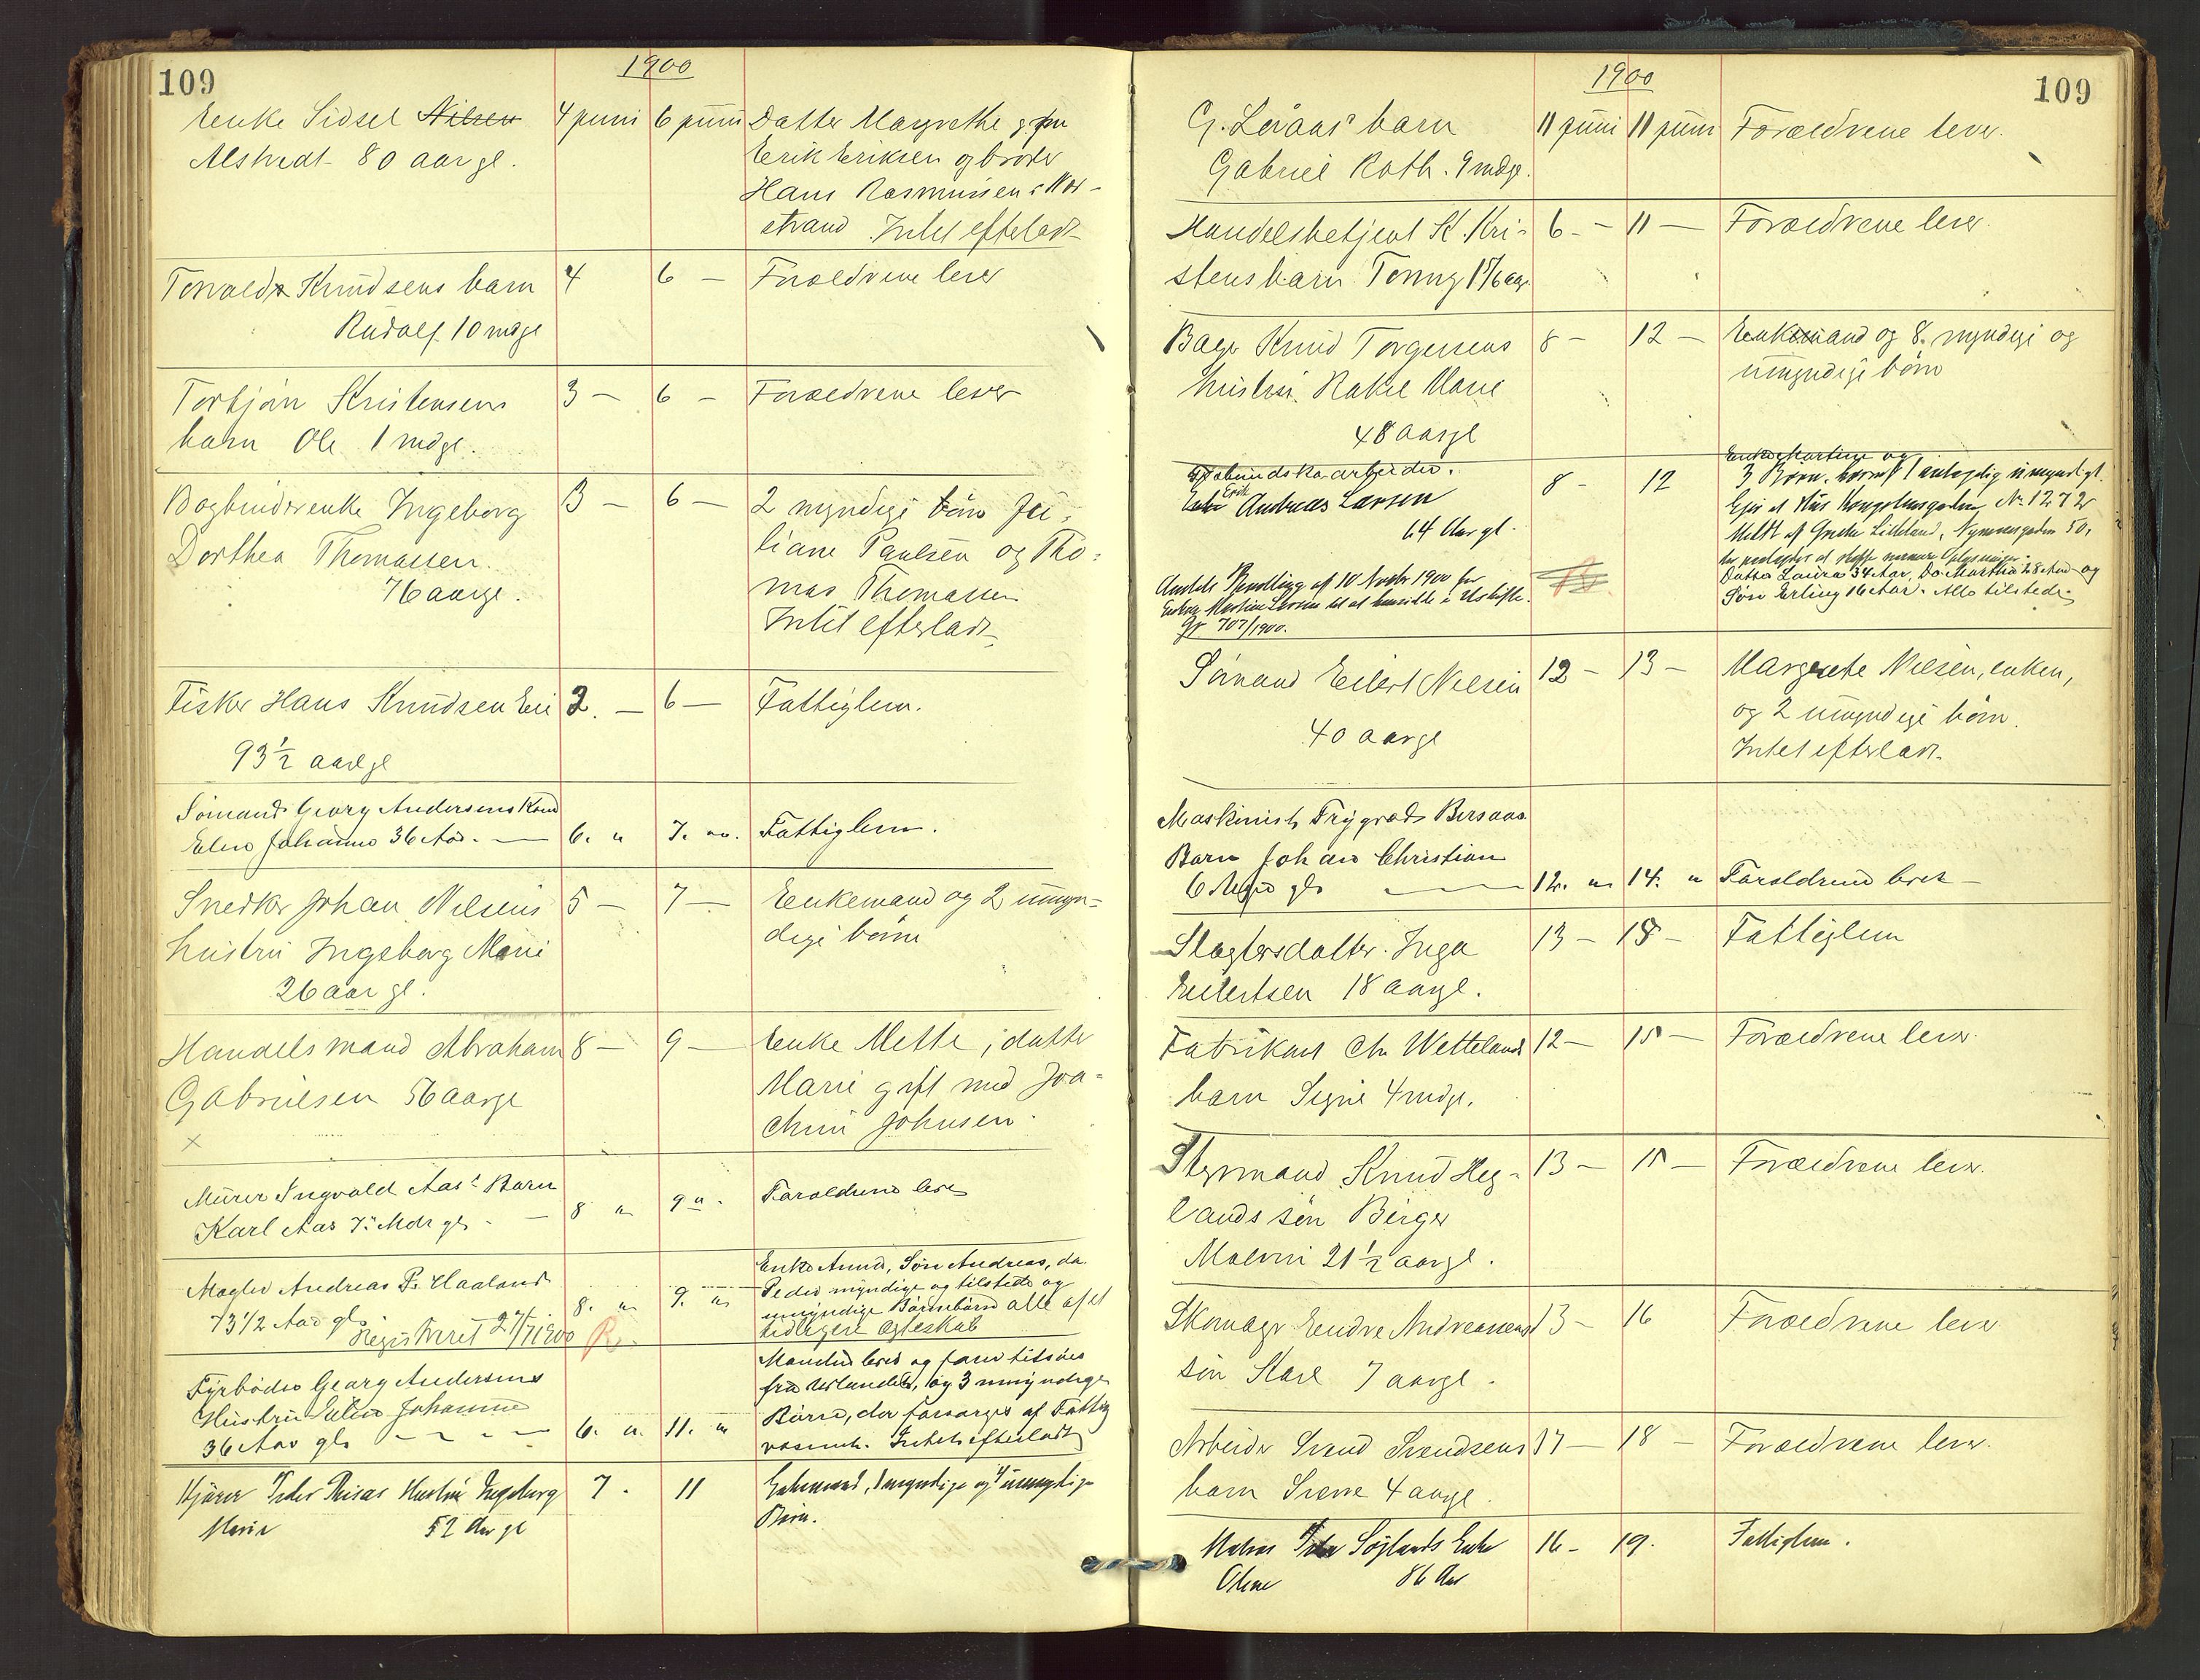 109
1900
Enke Sidsel Nilsen
Alstvedt 80 aar gl.
4 juni
6 juni
Datter Margrethe g. m
Erik Eriksen og broder
Hans Rasmussen i Nær-
strand Intet efterladt
Torvalds Knudsens barn
Rudolf 10 mdgl
4
6 —
Forældrene lever
Torbjørn Kristensens
barn Ole 1 mdgl.
3 —
6 —
Forældrene lever
Bogbinderenke Ingeborg
Dorthea Thomassen.
76 aargl.
3 —
6 —
2 myndige børn Ju-
liane Paulsen og Tho-
mas Thomassen
Intet efterladt
Fisker Hans Knudsen Eie
93 1/2 aargl
2. —
6 —
Fattiglem.
Sömand Georg Andersens Kone
Eline Johanne 36 Aar. —
6. "
7. "
Fattiglem.
Snedker Johan Nilsens
hustru Ingeborg Marie
26 aar gl.
5 —
7 —
Enkemand og 2 umyn-
dige børn
Handelsmand Abraham
Gabrielsen 56 aargl
×
8 —
9 —
Enke Mette, datter
Marie gift med Joa-
chim Johnsen.
Murer Ingvald Aas' Barn
Karl Aas 7 Mdr gl. —
8 "
9 "
Forældrene lever
Mægler Andreas P. Haaland
73 1/2 Aar gl.
Registreret 27/7 1900 R.
8. "
9. "
Enke Anna, Søn Andreas, do.
Peder myndige og tilstede og
umyndige Børnebørn alle af et
tidligere Ægteskab
Fyrböder Georg Andersens
Hustru Eline Johanne
36 Aar gl.
6. "
11. "
Manden lever og farer tilsøes
fra Udlandet, og 3 umyndige
Børn, der forsørges af Fattig
væsenet. Intet efterladt
Kjører Peder Risas Hustru Ingeborg
Marie 52 Aar gl
7 -
11
Enkemand, 1 myndige og 4 umyndige
Børn.
109
1900
G. Leraas' barn
Gabriel Kath. 9 mdgl.
11 juni
11 juni
Forældrene lever.
Handelsbetjent K. Kri-
stens barn Tonny 1 5/6 aar
6 —
11 —
Forældrene lever
Bager Knud Torgersens
hustru Rakel Marie
48 aargl
8 —
12 —
Enkemand og 8 myndige og
umyndige børn
Erik
Andreas Larsen
64 Aar gl.
8 -
12
Enke Martine og
3 Børn, hvoraf 1 antagelig umyndigt.
Ejer et Hus Kongsteinsgaden No 12, 72
Meldt af Grethe Lilleland, Nymansgaden 50,
Datter Laura 34 Aar, Do Martha 28 Aar og
Søn Erling 16 Aar. Alle tilstede.
Amtets Bevilling af 10 Novbr 1900 for
Enken Martine Larsen til at hensidde i Uskifte.
Gj 707/1900.
Sömand Eilert Nielsen
40 aargl
12 —
13 —
Margrete Nielsen, enken,
og 2 umyndige børn.
Intet efterladt.
Maskinist Trygvads Bersaas
Barn Johan Christian
6 gl. —
12. "
14. "
Forældrene lever —
Slagtersdatter Inga
Eilertsen 18 aargl.
13 —
15 —
Fattiglem
Fabrikant Chr Wettelands
barn Signe 4 mdgl.
12 —
15 —
Forældrene lever.
Styrmand Knud Heg-
lands søn Birger
Malvin 21 1/2 aargl.
13 —
15 —
Forældrene lever.
Skomager Endre Andreassens
søn Karl 7 aargl.
13 —
16
Forældrene lever
Arbeider Svend Svendsens
barn Sverre 4 aargl.
17 —
18 —
Forældrene lever.
Peder Söylands Enke
Oline 86 Aar
16 -
19.
Fattiglem.